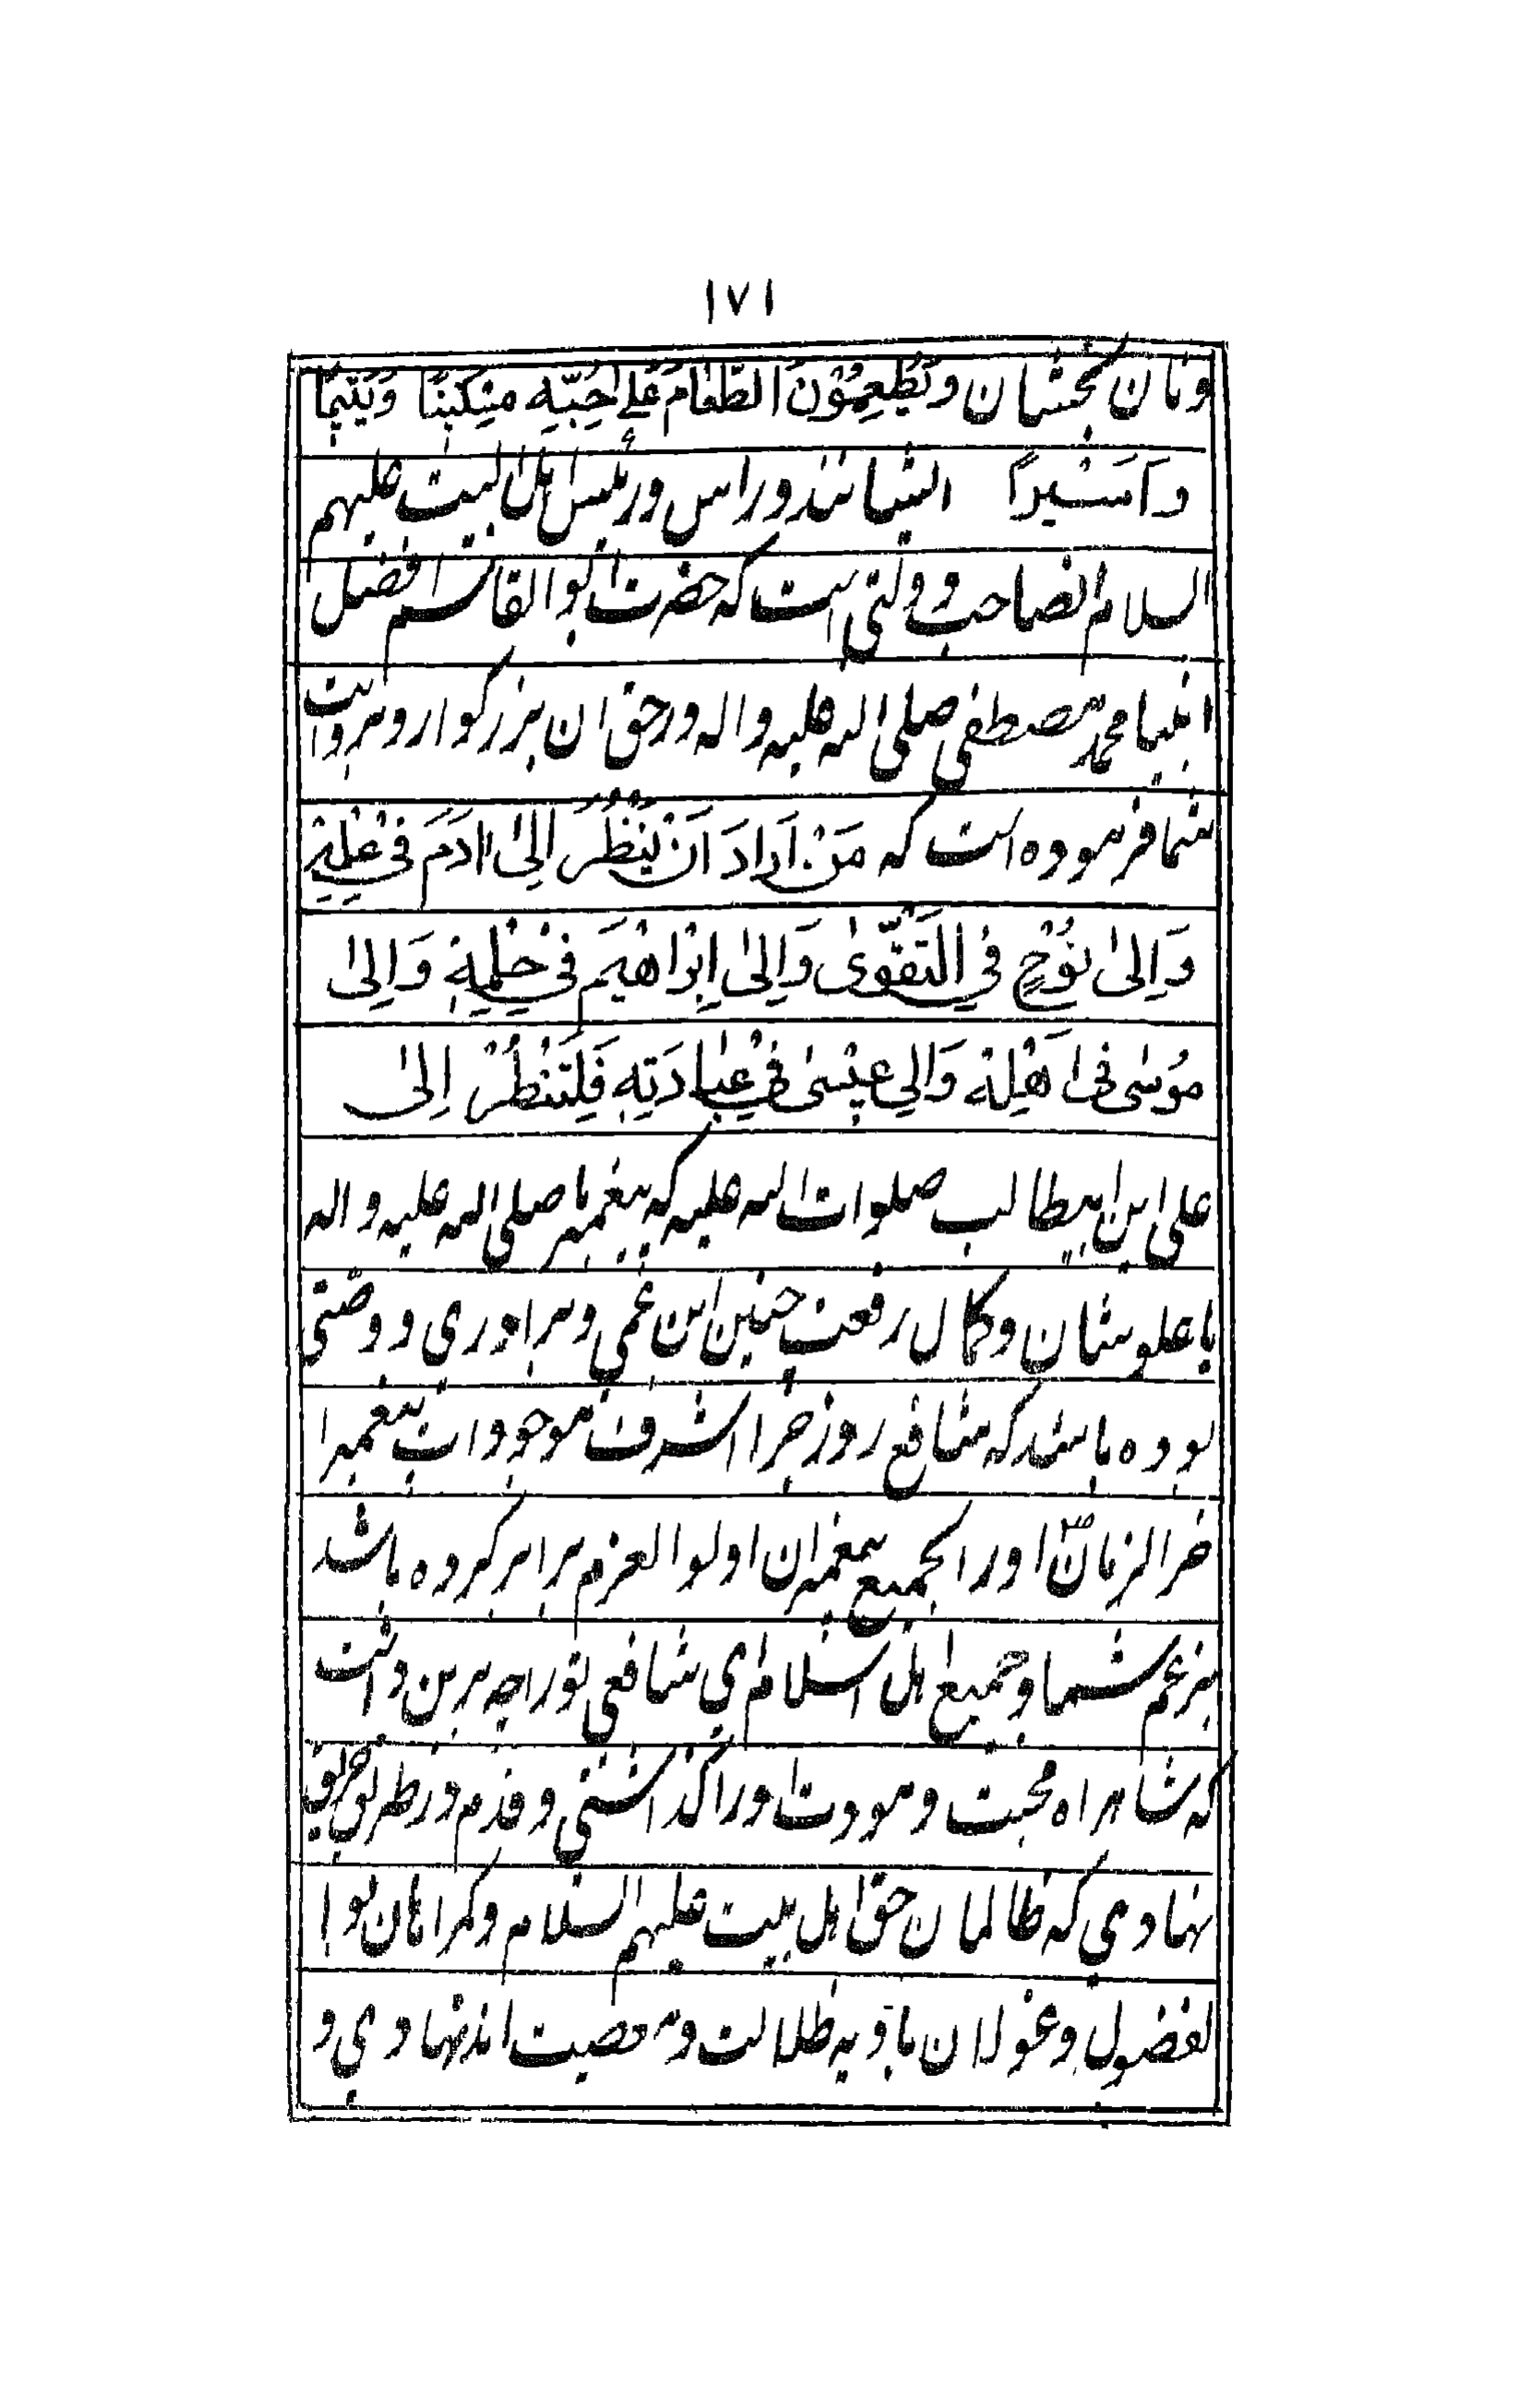 ۱۷۱
ونان بخشان وَيُطْعِمُوْنَ الطَّعَامَ عَلٰى حُبِّهٖ مِسْكِيْنًا وَيَتِيْمًا
وَاَسِيْرًا ایشانند وراس ورئیس اهل البیت علیهم
السلام انصاحب دولتی است که حضرت ابوالقاسم افضل
انبیا محمد مصطفی صلی الله علیه واله درحق ان بزرگوار و بروایت
شما فرموده است که مَنْ اَرَادَ اَنْ يَنْظُرُ اِلىٰ اٰدَمَ فِيْ عِلْمِهٖ
وَاِلىٰ نُوْحٍ فِي التَّقْوٰى وَاِلىٰ اِبْرَاهِيْمَ فِيْ حِلْمِهٖ وَاِلىٰ
مُوْسٰى فى اَهْلِهٖ وَاِلي عِيْسىٰ فِيْ عِبَادَتِهٖ فَلْيَنْظُرْ اِلىٰ
علی ابن ابیطالب صلوات الله علیه که پیغمبر ما صلی الله علیه واله
با علو شان وکمال رفعت چنین ابن عمی و برادری و وصئی
بوده باشد که شافع روز جزا اشرف موجودات پیغمبر ا
خرالزمانؐ اورا بجمیع پیغمبران اولوالعزم برابر کرده باشد
بزعم شما وجمیع اهل اسلام ای شافعی تورا چه برین داشت
که شاهراه محبت و مودت اورا گذاشتی وقدم درطریق
نهادی که ظالمان حق اهل بیت علیهم السلام وگمراهان بوا
لفضول وغولان بادیه ظلالت ومعصیت اند نهادی و